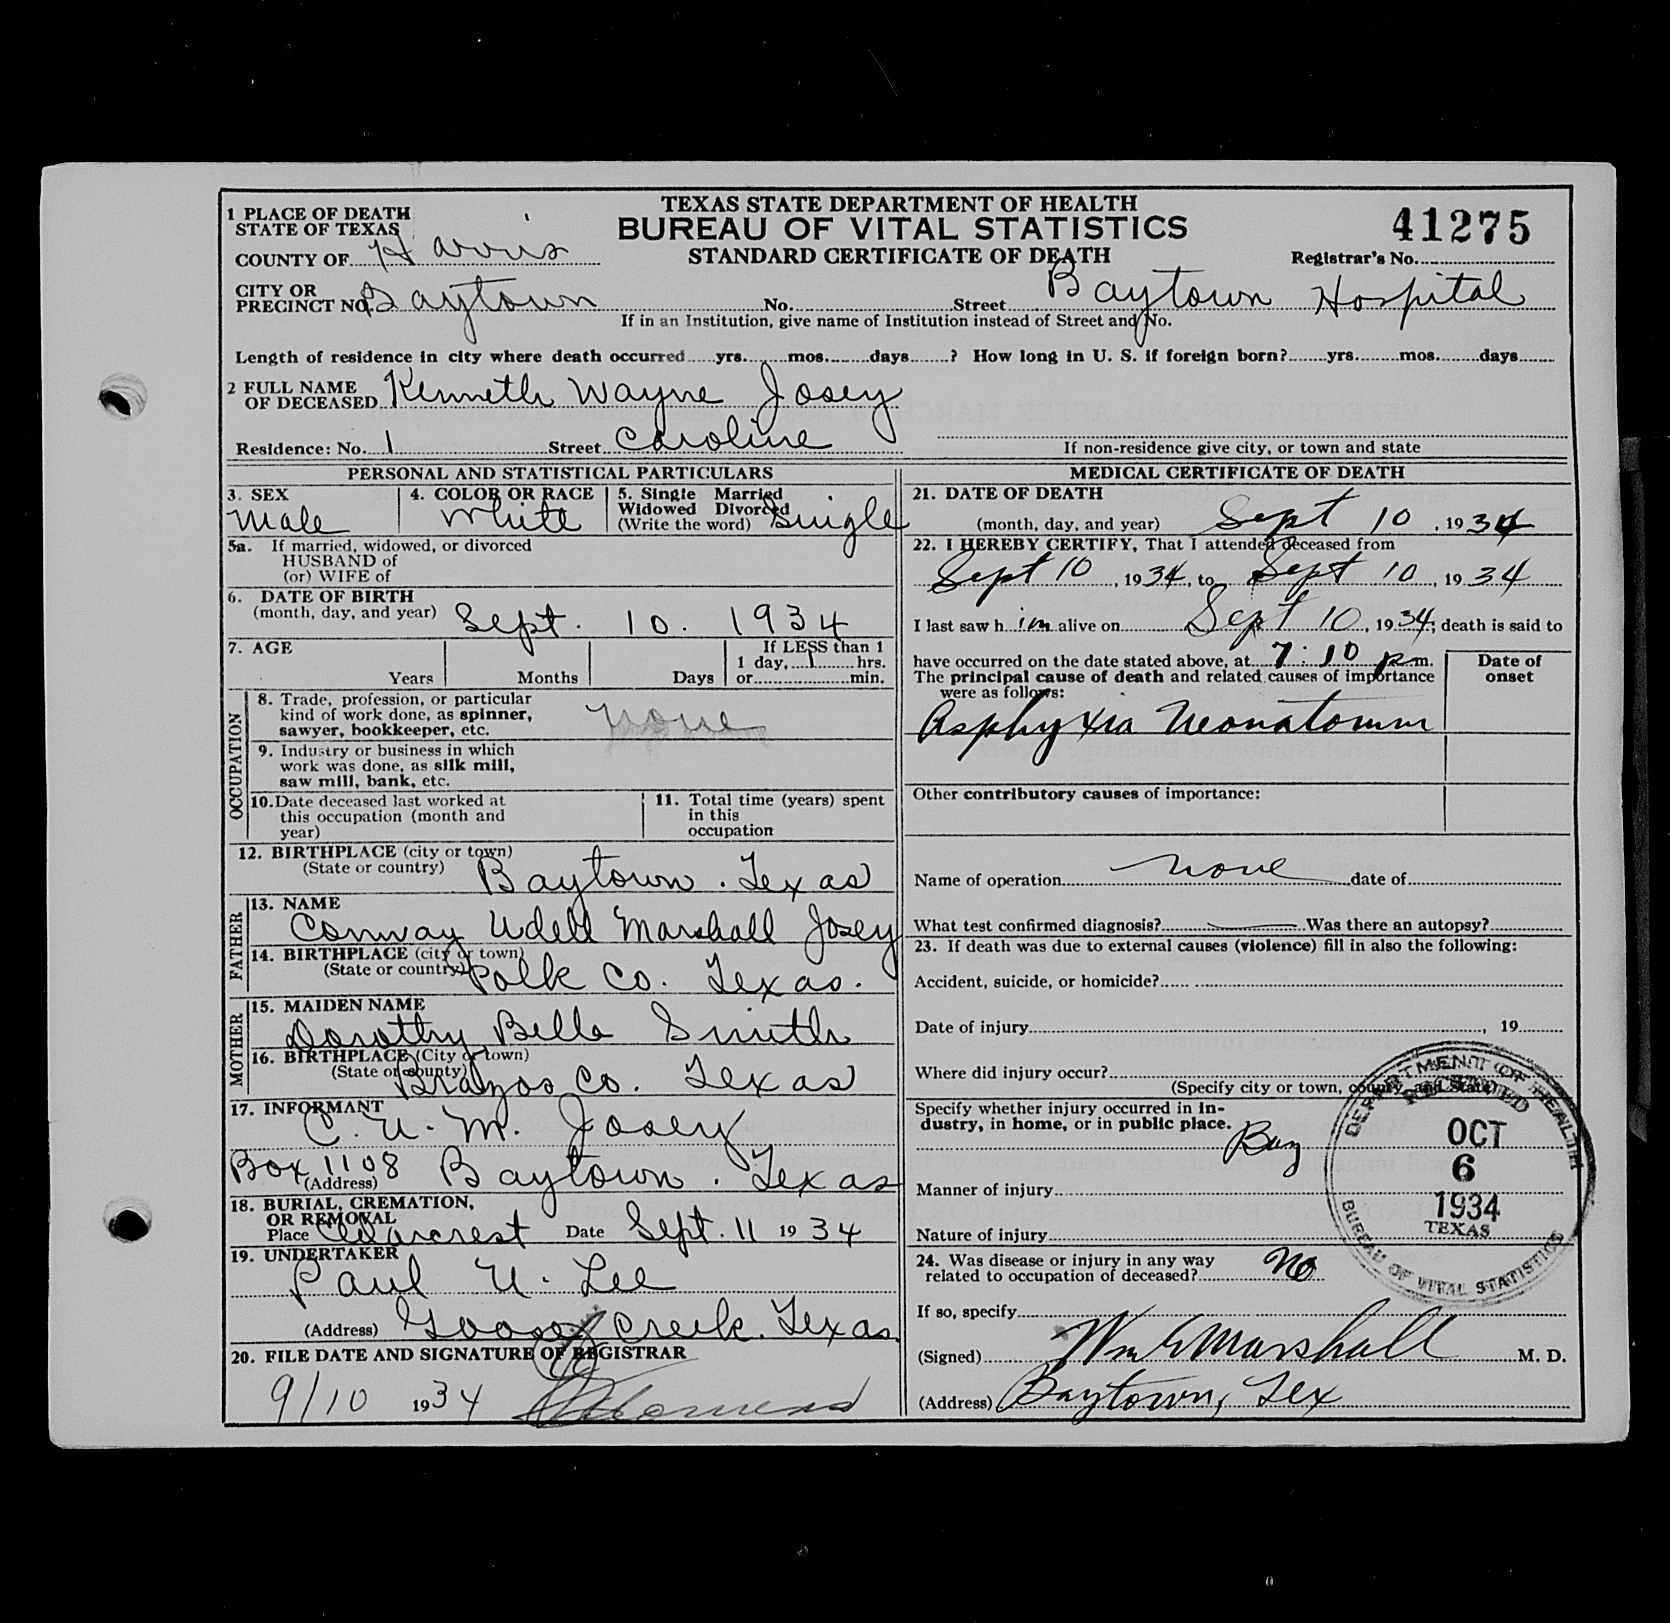 TEXAS STATE DEPARTMENT OF HEALTH
BUREAU OF VITAL STATISTICS
STANDARD CERTIFICATE OF DEATH
41275
Registrar's No.
1 PLACE OF DEATH
STATE OF TEXAS
COUNTY OF Harris
CITY OR
PRECINCT NO. Baytown No. Street Baytown Hospital
If in an Institution, give name of Institution instead of Street and No.
Length of residence in city where death occurred yrs. mos. days ? How long in U. S. if foreign born? yrs. mos. days
2 FULL NAME
OF DECEASED Kenneth Wayne Josey
Residence: No. 1 Street Caroline
If non-residence give city, or town and state
PERSONAL AND STATISTICAL PARTICULARS
3. SEX
Male
4. COLOR OR RACE
White
5. Single Married
Widowed Divorced
(Write the word) Single
5a. If married, widowed, or divorced
HUSBAND of
(or) WIFE of
6. DATE OF BIRTH
(month, day, and year) Sept. 10. 1934
7. AGE
Years Months Days
If LESS than 1
1 day, 1 hrs.
or min.
OCCUPATION
8. Trade, profession, or particular
kind of work done, as spinner,
sawyer, bookkeeper, etc. None
9. Industry or business in which
work was done, as silk mill,
saw mill, bank, etc.
10. Date deceased last worked at
this occupation (month and
year)
11. Total time (years) spent
in this
occupation
12. BIRTHPLACE (city or town)
(State or country) Baytown. Texas
FATHER
13. NAME
Conway Udell Marshall Josey
14. BIRTHPLACE (city or town)
(State or country) Polk Co. Texas.
MOTHER
15. MAIDEN NAME
Dorothy Belle Smith
16. BIRTHPLACE (City or town)
(State or county) Brazos Co. Texas
17. INFORMANT
C. U. M. Josey
Box 1108 Baytown. Texas
(Address)
18. BURIAL, CREMATION,
OR REMOVAL
Place Cedarcrest Date Sept. 11 1934
19. UNDERTAKER
Paul U. Lee
(Address) Goose Creek. Texas.
20. FILE DATE AND SIGNATURE OF REGISTRAR
9/10 1934
MEDICAL CERTIFICATE OF DEATH
21. DATE OF DEATH
(month, day, and year) Sept 10, 1934
22. I HEREBY CERTIFY, That I attended deceased from
Sept 10, 1934, to Sept 10, 1934
I last saw him alive on Sept 10, 1934; death is said to
have occurred on the date stated above, at 7:10 pm.
The principal cause of death and related causes of importance
were as follows:
Date of
onset
Asphyxia Neonatorum
Other contributory causes of importance:
Name of operation None date of
What test confirmed diagnosis? Was there an autopsy?
23. If death was due to external causes (violence) fill in also the following:
Accident, suicide, or homicide?
Date of injury , 19
Where did injury occur?
(Specify city or town, county, and State)
Specify whether injury occurred in in-
dustry, in home, or in public place.
Manner of injury
Nature of injury
24. Was disease or injury in any way
related to occupation of deceased? No
If so, specify
(Signed) Wm G Marshall M. D.
(Address) Baytown, Tex
DEPARTMENT OF HEALTH
RECEIVED
OCT
6
1934
TEXAS
BUREAU OF VITAL STATISTICS